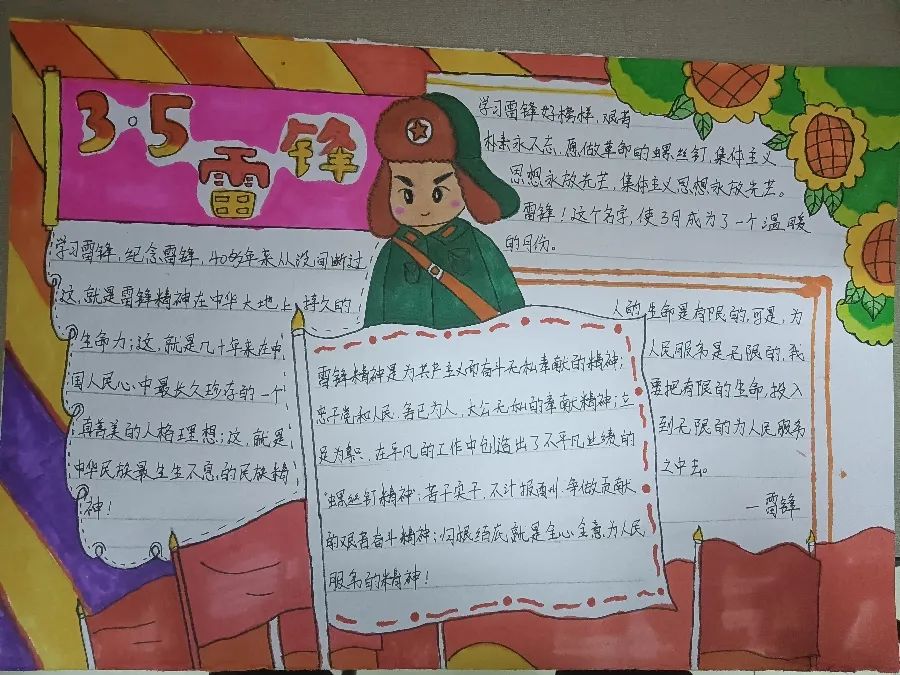 3·5
雷锋
学习雷锋好榜样，艰苦
朴素永不忘，愿做革命的螺丝钉，集体主义
思想永放光芒，集体主义思想永放光芒。
雷锋！这个名字，使3月成为了一个温暖
的月份。
学习雷锋，纪念雷锋，40多年来从没间断过
这，就是雷锋精神在中华大地上持久的
生命力；这，就是几十年来在中
国人民心中最长久珍存的一个
真善美的人格理想；这，就是
中华民族最生生不息的民族精
神！
雷锋精神是为共产主义而奋斗无私奉献的精神；
忠于党和人民，舍己为人，大公无私的奉献精神；立
足本，在平凡的工作中创造出了不平凡业绩的
“螺丝钉精神；苦干实干，不计报酬，争做贡献
的艰苦奋斗精神；归根结底，就是全心全意为人民
服务的精神！
人的生命是有限的，可是，为
人民服务是无限的，我
要把有限的生命，投入
到无限的为人民服务
之中去。
—雷锋